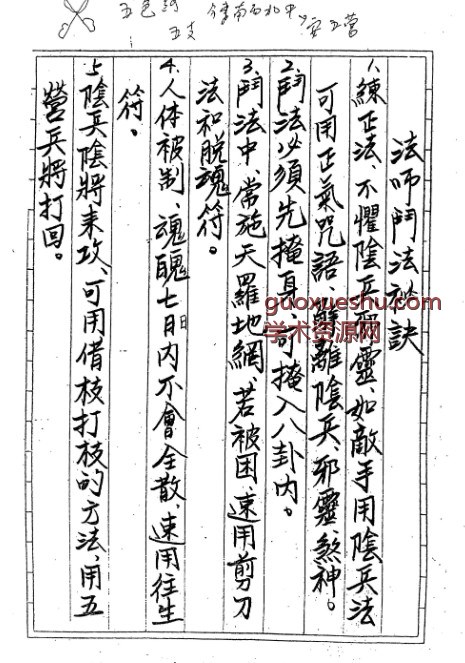 五色
五支
東南西北中
安五營
法师鬥法秘訣
1、練正法、不懼陰兵邪靈、如敵手用陰兵法
可用正氣咒語、離陰兵、邪靈、煞神。
2、鬥法必須先掩身、可掩入八卦內。
3、鬥法中、常施天羅地網、若被困、速用剪刀
法和脫魂符。
4、人体被制、魂魄七日內不會全散、速用往生
符。
5、陰兵陰將来攻、可用借枝打枝的方法、用五
營兵將打回。
guoxueshu.com
学术资源网